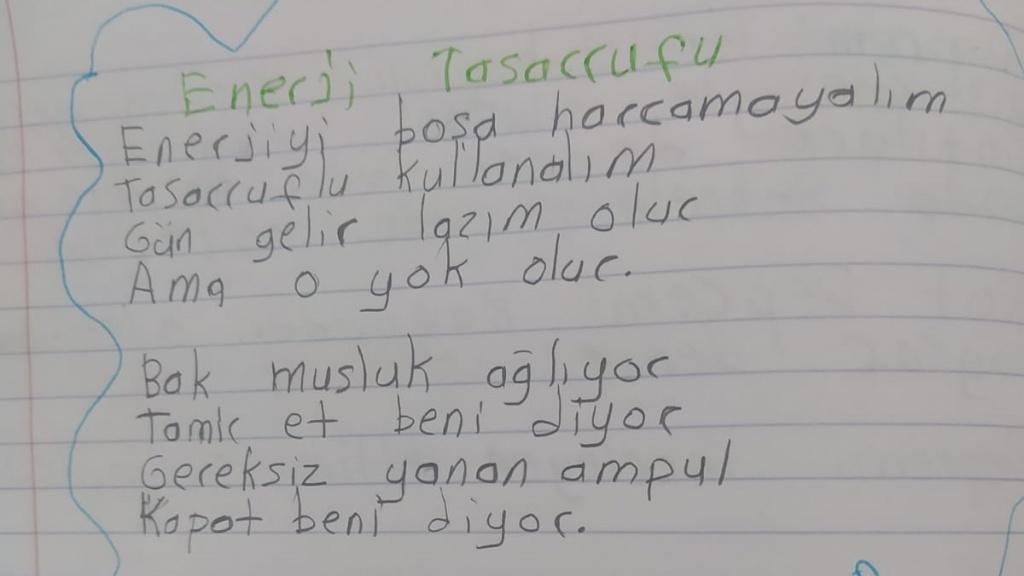 Enerji Tasarrufu
Enerjiyi boşa harcamayalım
Tasarruflu kullanalım
Gün gelir lazım olur
Ama o yok olur.
Bak musluk ağlıyor
Tamir et beni diyor
Gereksiz yanan ampul
Kapat beni diyor.